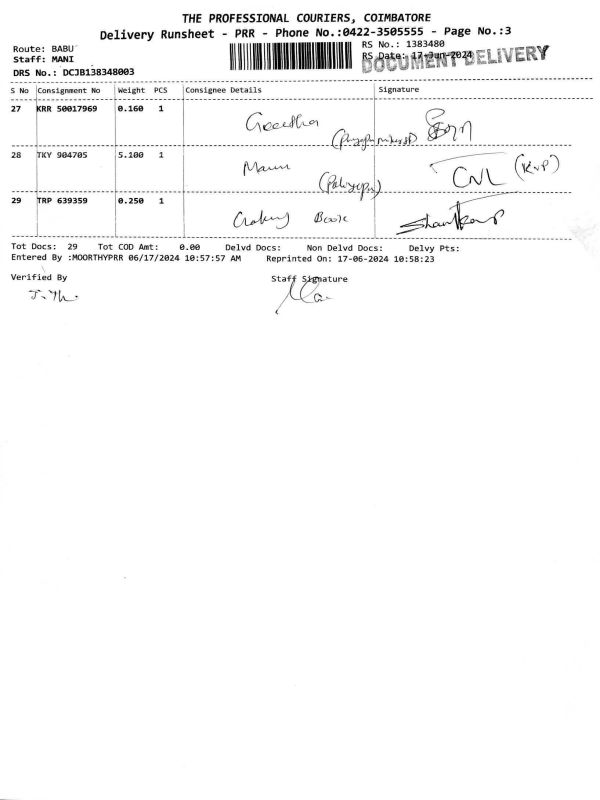 THE PROFESSIONAL COURIERS, COIMBATORE
Delivery Runsheet - PRR - Phone No.:0422-3505555 - Page No.:3
Route: BABU
Staff: MANI
DRS No.: DCJB138348003
RS No.: 1383480
RS Date: 17-Jun-2024
DOCUMENT DELIVERY
S No Consignment No Weight PCS Consignee Details Signature
27 KRR 50017969 0.160 1 Geetha
28 TKY 904705 5.100 1
29 TRP 639359 0.250 1
Tot Docs: 29 Tot COD Amt: 0.00 Delvd Docs: Non Delvd Docs: Delvy Pts:
Entered By :MOORTHYPRR 06/17/2024 10:57:57 AM Reprinted On: 17-06-2024 10:58:23
Verified By Staff Signature